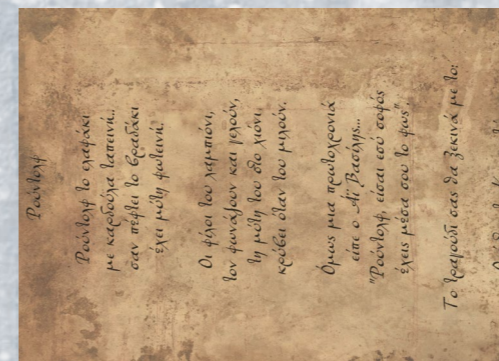 Ρούντολφ
Ρούντολφ το ελαφάκι
με καρδούλα ταπεινή...
σαν πέφτει το βραδάκι
έχει μύτη φωτεινή.
Οι φίλοι του λαμπιόνι,
τον φωνάζουν και γελούν,
τη μύτη του στο χιόνι
κρύβει όταν του μιλούν.
Όμως μια πρωτοχρονιά
είπε ο Αϊ Βασίλης...
"Ρούντολφ, είσαι εσύ σοφός
έχεις μέσα σου το φως".
Το τραγούδι σας θα ξεκινά με το: